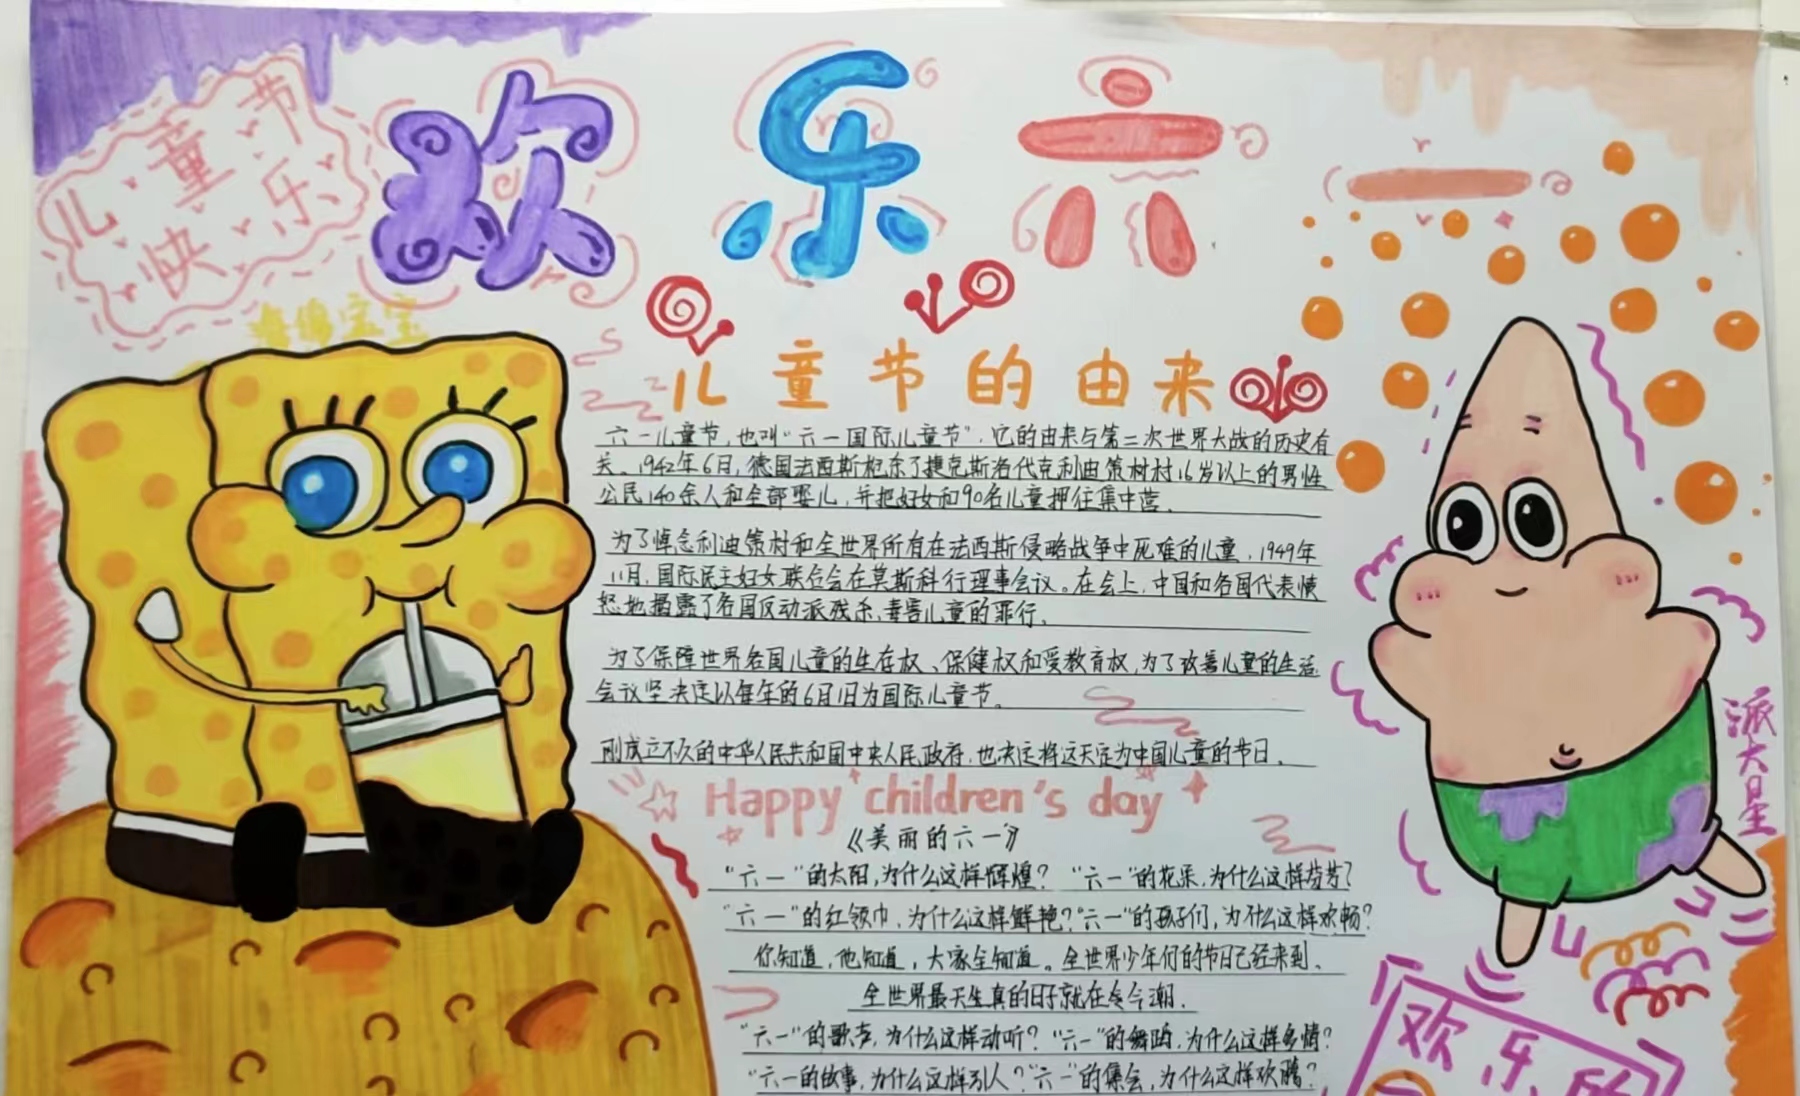 儿童节
快乐
欢乐六一
海绵宝宝
儿童节的由来
六一儿童节,也叫“六一国际儿童节”,它的由来与第二次世界大战的历史有
关。1942年6月,德国法西斯枪杀了捷克斯洛伐克利迪策村村16岁以上的男性
公民140余人和全部婴儿,并把妇女和90名儿童押往集中营。
为了悼念利迪策村和全世界所有在法西斯侵略战争中死难的儿童,1949年
11月,国际民主妇女联合会在莫斯科行理事会议。在会上,中国和各国代表愤
怒地揭露了各国反动派残杀,毒害儿童的罪行。
为了保障世界各国儿童的生存权、保健权和受教育权,为了改善儿童的生活
会议坚决定以每年的6月1日为国际儿童节。
刚成立不久的中华人民共和国中央人民政府,也决定将这天定为中国儿童的节日。
Happy children's day
《美丽的六一》
“六一”的太阳,为什么这样辉煌? “六一”的花朵,为什么这样芬芳?
“六一”的红领巾,为什么这样鲜艳?“六一”的孩子们,为什么这样欢畅?
你知道,他知道,大家全知道。全世界少年们的节日已经来到、
全世界最天生真的日子就在今潮.
“六一”的歌声,为什么这样动听?“六一”的舞蹈,为什么这样多情?
“六一的故事,为什么这样别人?“六一”的集会,为什么这样欢腾?
派大星
欢乐的